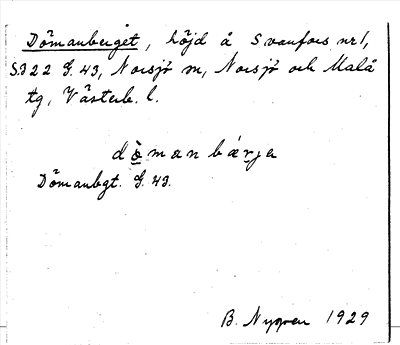 Dömanberget, höjd å Svanfors nr 1,
S.322 G.43, Norsjö sn, Norsjö och Malå
tg, Västerb. l.
dömanbärja
Dömanbgt. G. 43.
B. Nygren 1929